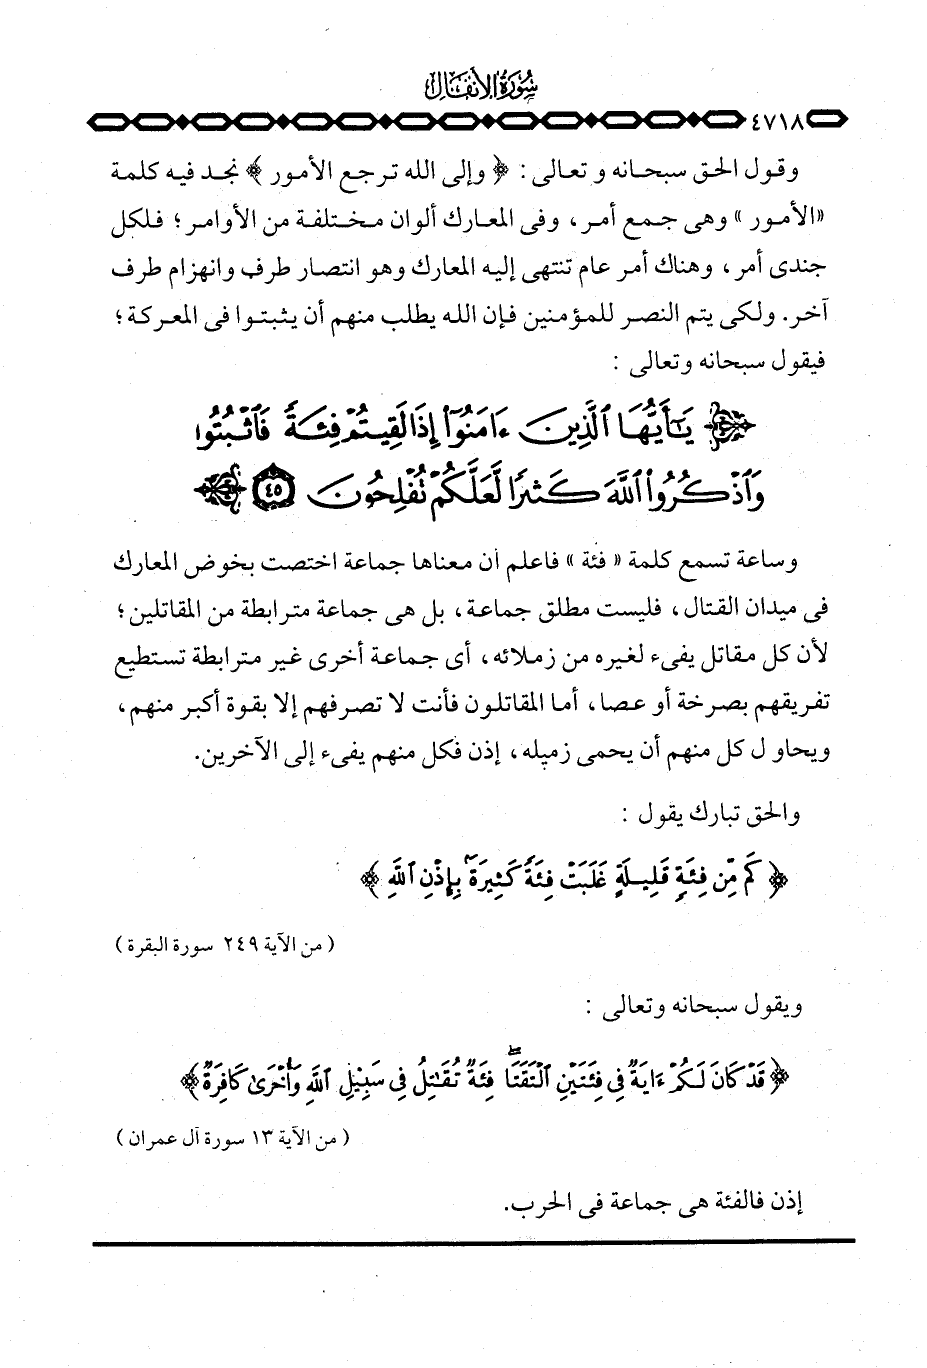 سورة الأنفال
٤٧١٨
وقول الحق سبحانه وتعالى : ﴿ وإلى الله ترجع الأمور ﴾ نجد فيه كلمة
«الأمور » وهى جمع أمر ، وفى المعارك ألوان مختلفة من الأوامر ؛ فلكل
جندى أمر ، وهناك أمر عام تنتهى إليه المعارك وهو انتصار طرف وانهزام طرف
آخر. ولكى يتم النصر للمؤمنين فإن الله يطلب منهم أن يثبتوا فى المعركة ؛
فيقول سبحانه وتعالى :
﴿ يَٰٓأَيُّهَا ٱلَّذِينَ ءَامَنُوٓا۟ إِذَا لَقِيتُمْ فِئَةً فَٱثْبُتُوا۟
وَٱذْكُرُوا۟ ٱللَّهَ كَثِيرًا لَّعَلَّكُمْ تُفْلِحُونَ ٤٥ ﴾
وساعة تسمع كلمة « فئة » فاعلم أن معناها جماعة اختصت بخوض المعارك
فى ميدان القتال ، فليست مطلق جماعة ، بل هى جماعة مترابطة من المقاتلين ؛
لأن كل مقاتل يفىء لغيره من زملائه ، أى جماعة أخرى غير مترابطة تستطيع
تفريقهم بصرخة أو عصا ، أما المقاتلون فأنت لا تصرفهم إلا بقوة أكبر منهم ،
ويحاول كل منهم أن يحمى زميله ، إذن فكل منهم يفىء إلى الآخرين.
والحق تبارك يقول :
﴿ كَم مِّن فِئَةٍ قَلِيلَةٍ غَلَبَتْ فِئَةً كَثِيرَةًۢ بِإِذْنِ ٱللَّهِ ﴾
( من الآية ٢٤٩ سورة البقرة )
ويقول سبحانه وتعالى :
﴿ قَدْ كَانَ لَكُمْ ءَايَةٌ فِى فِئَتَيْنِ ٱلْتَقَتَا ۖ فِئَةٌ تُقَٰتِلُ فِى سَبِيلِ ٱللَّهِ وَأُخْرَىٰ كَافِرَةٌ ﴾
( من الآية ١٣ سورة آل عمران )
إذن فالفئة هى جماعة فى الحرب.